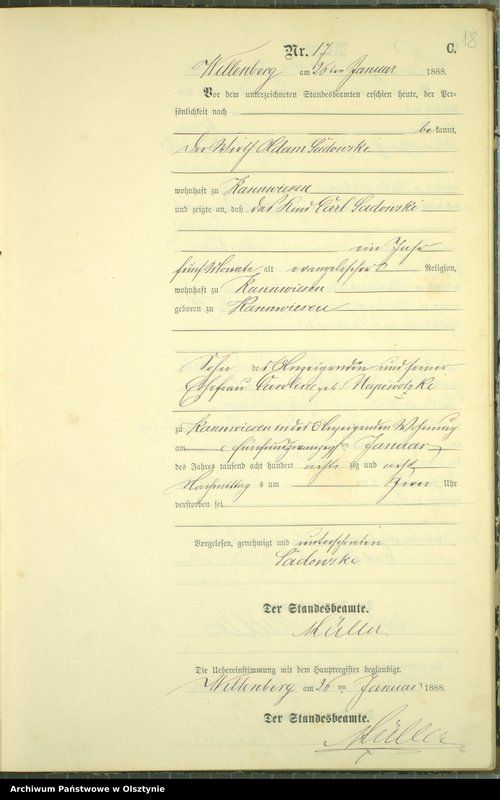 18
Nr. 17 C.
Willenberg am 26 ten Januar 1888.
Vor dem unterzeichneten Standesbeamten erschien heute, der Per-
sönlichkeit nach
be kannt,
der Wirth Adam Sadowski
wohnhaft zu Kannwiesen
und zeigte an, daß das Kind Carl Sadowski
ein Jahr
fünf Monate alt evangelischer Religion,
wohnhaft zu Kannwiesen
geboren zu Kannwiesen
Sohn des Anzeigenden und seiner
Ehefrau Caroline geb. Napiwotzki
zu Kannwiesen in des Anzeigenden Wohnung
am fünfundzwanzigsten Januar
des Jahres tausend acht hundert achtzig und acht
Nachmittags um Uhr
verstorben sei
Vorgelesen, genehmigt und unterschrieben
Sadowski
Der Standesbeamte.
Müller
Die Uebereinstimmung mit dem Hauptregister beglaubigt.
Willenberg am 26 ten Januar 1888.
Der Standesbeamte.
Müller
Archiwum Państwowe w Olsztynie